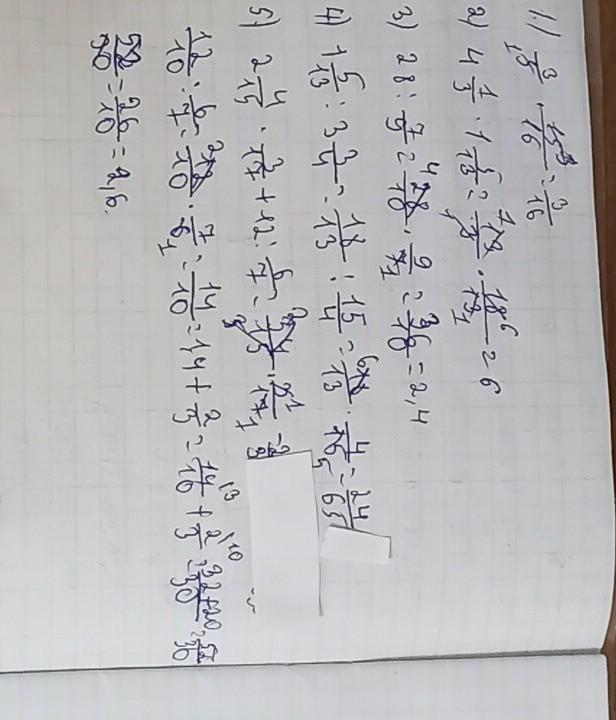 1.) 3/5 · 15/16 = 3/16
2) 4 1/3 · 1 5/13 = 13/3 · 18/13 = 6
3) 28 : 7/9 = 28/10 · 9/7 = 36/10 = 2,4
4) 1 5/13 : 3 3/4 = 18/13 : 15/4 = 18/13 · 4/15 = 24/65
5) 2 4/15 · 2/17 + 12 : 6/7 =
12/10 : 6/7 = 12/10 · 7/6 = 14/10 = 14 + 2/3 = 14/10 + 2/3 = 32+20/30 = 52/30
52/30 = 26/10 = 2,6.